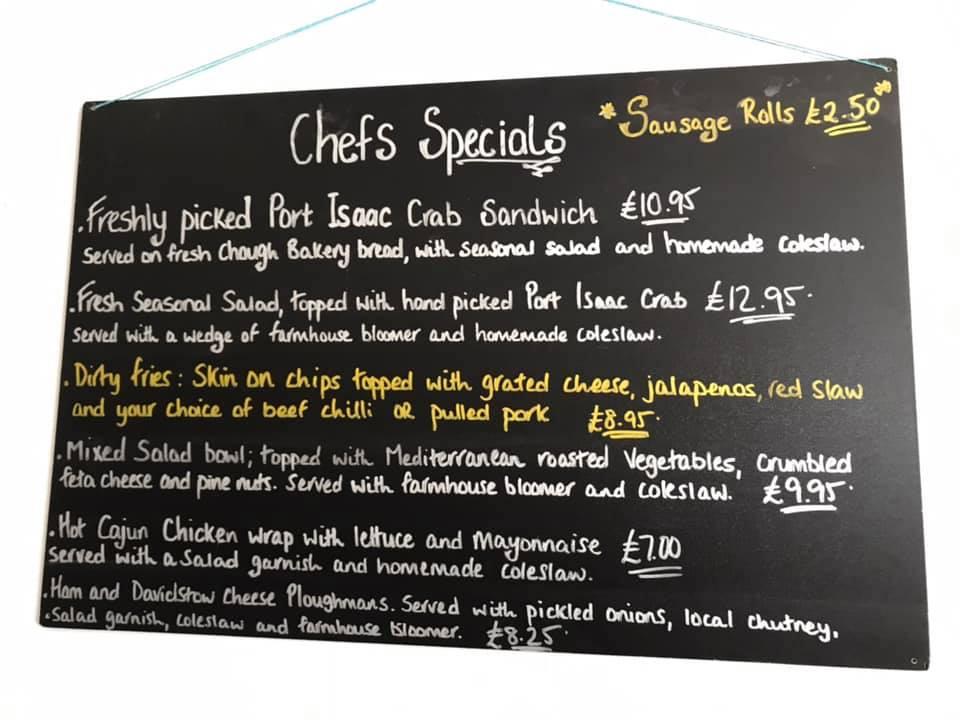 Chefs Specials
*Sausage Rolls £2.50**
.Freshly picked Port Isaac Crab Sandwich £10.95
Served on fresh Chough Bakery bread, with seasonal salad and homemade coleslaw.
.Fresh Seasonal Salad, topped with hand picked Port Isaac Crab £12.95.
Served with a wedge of farmhouse bloomer and homemade coleslaw.
.Dirty fries: Skin on chips topped with grated cheese, jalapenos, red slaw
and your choice of beef chilli OR pulled pork £8.95.
.Mixed Salad bowl; topped with Mediterranean roasted Vegetables, Crumbled
feta cheese and pine nuts. Served with farmhouse bloomer and coleslaw. £9.95.
.Hot Cajun Chicken wrap with lettuce and Mayonnaise £7.00
served with a salad garnish and homemade coleslaw.
.Ham and Davidstow Cheese Ploughmans. Served with pickled onions, local chutney,
.Salad garnish, coleslaw and farmhouse bloomer. £8.25.